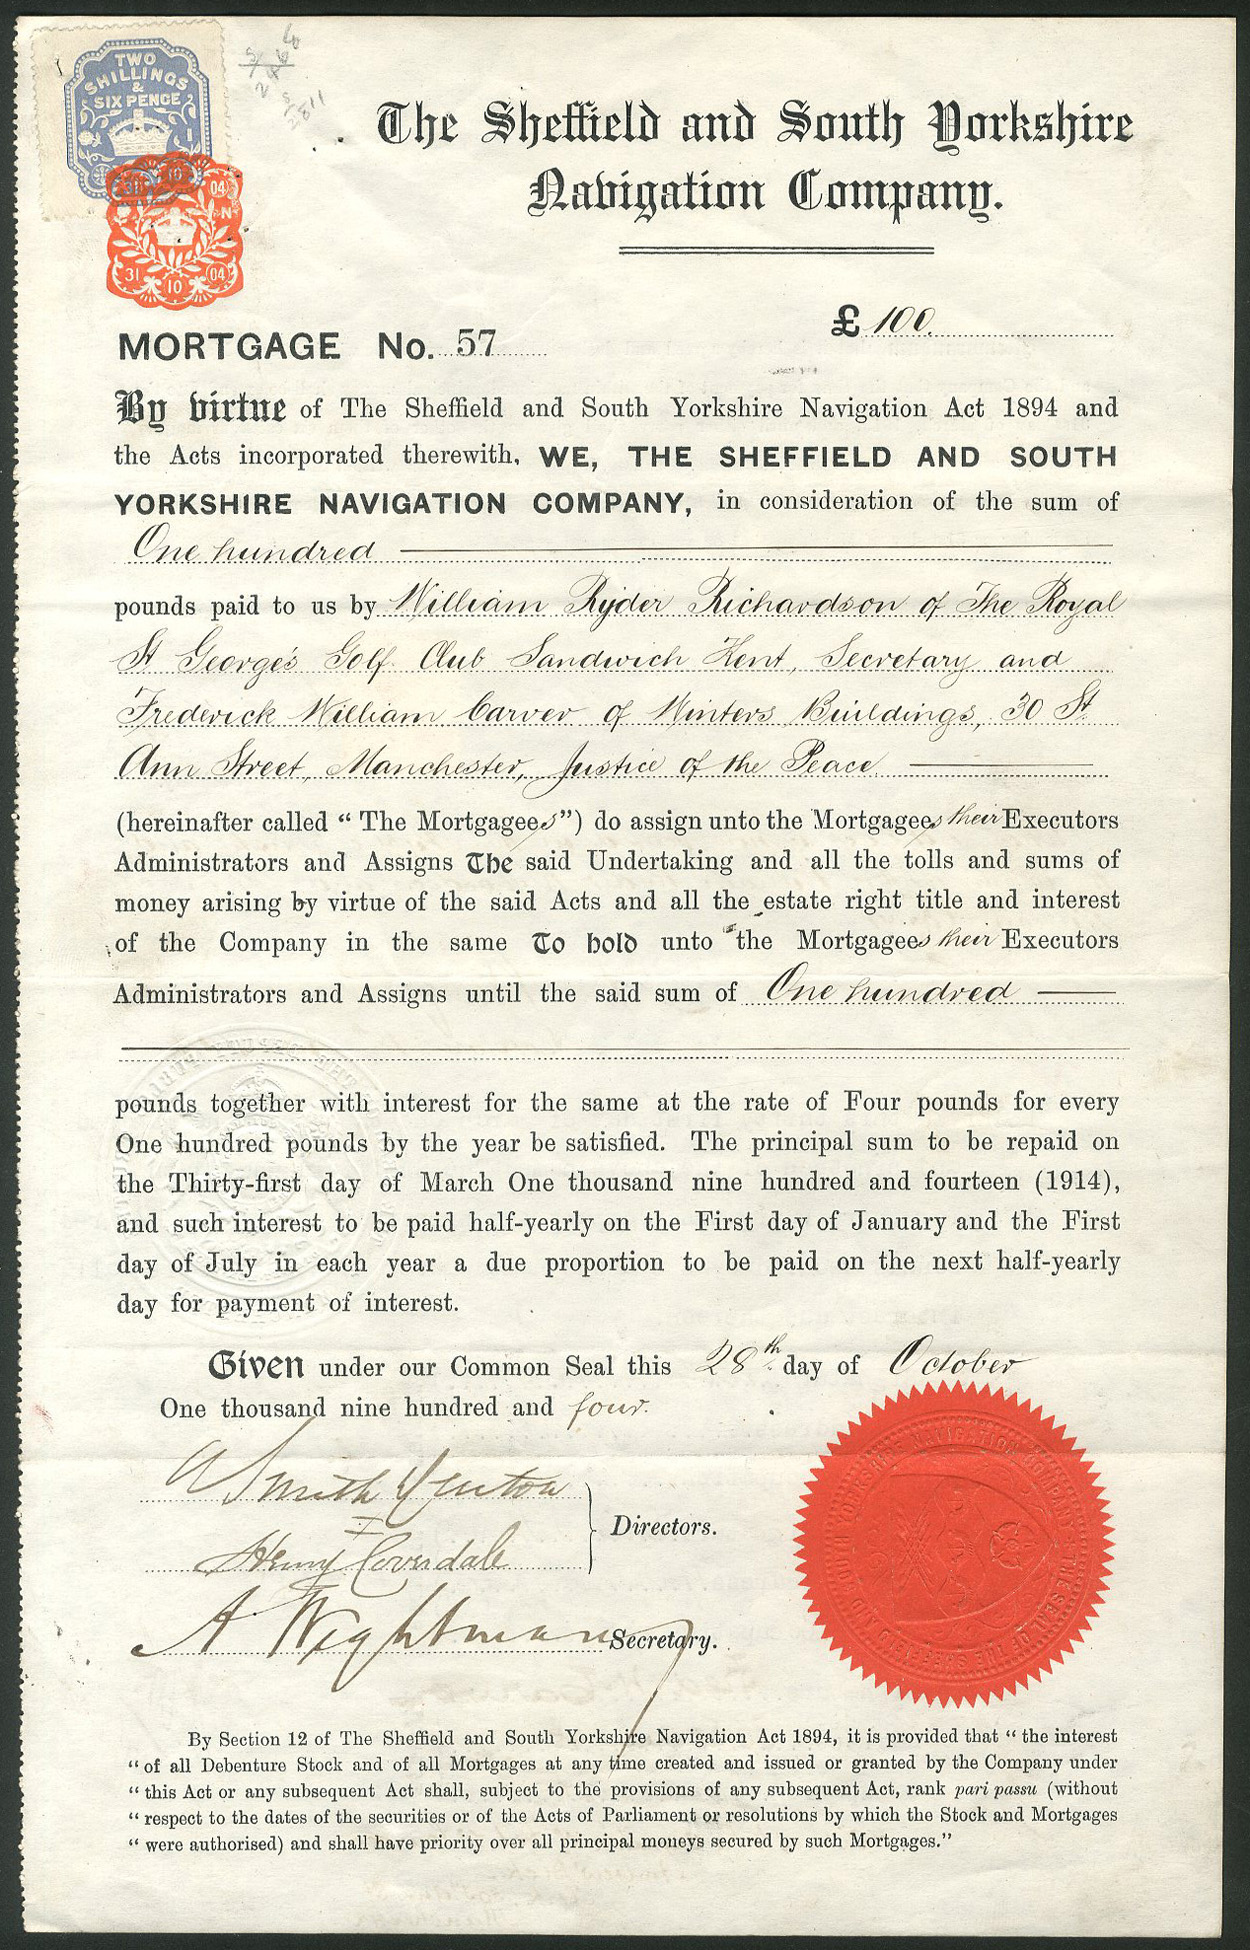 TWO
SHILLINGS
&
SIX PENCE
31 10 04
N
31 10 04
The Sheffield and South Yorkshire
Navigation Company.
£ 100.
MORTGAGE No. 57
By virtue of The Sheffield and South Yorkshire Navigation Act 1894 and
the Acts incorporated therewith, WE, THE SHEFFIELD AND SOUTH
YORKSHIRE NAVIGATION COMPANY, in consideration of the sum of
One hundred
pounds paid to us by William Ryder Richardson of The Royal
St George's Golf Club Sandwich Kent, Secretary and
Frederick William Carver of Winters Buildings, 30 St.
Ann Street, Manchester, Justice of the Peace.
(hereinafter called “ The Mortgagees”) do assign unto the Mortgagees their Executors
Administrators and Assigns The said Undertaking and all the tolls and sums of
money arising by virtue of the said Acts and all the estate right title and interest
of the Company in the same To hold unto the Mortgagees their Executors
Administrators and Assigns until the said sum of One hundred
pounds together with interest for the same at the rate of Four pounds for every
One hundred pounds by the year be satisfied. The principal sum to be repaid on
the Thirty-first day of March One thousand nine hundred and fourteen (1914),
and such interest to be paid half-yearly on the First day of January and the First
day of July in each year a due proportion to be paid on the next half-yearly
day for payment of interest.
Given under our Common Seal this 28th day of October
One thousand nine hundred and four.
A Smith Denton
Henry Coverdale
Directors.
A. Wightman Secretary.
By Section 12 of The Sheffield and South Yorkshire Navigation Act 1894, it is provided that “ the interest
“ of all Debenture Stock and of all Mortgages at any time created and issued or granted by the Company under
“ this Act or any subsequent Act shall, subject to the provisions of any subsequent Act, rank pari passu (without
“ respect to the dates of the securities or of the Acts of Parliament or resolutions by which the Stock and Mortgages
“ were authorised) and shall have priority over all principal moneys secured by such Mortgages.”